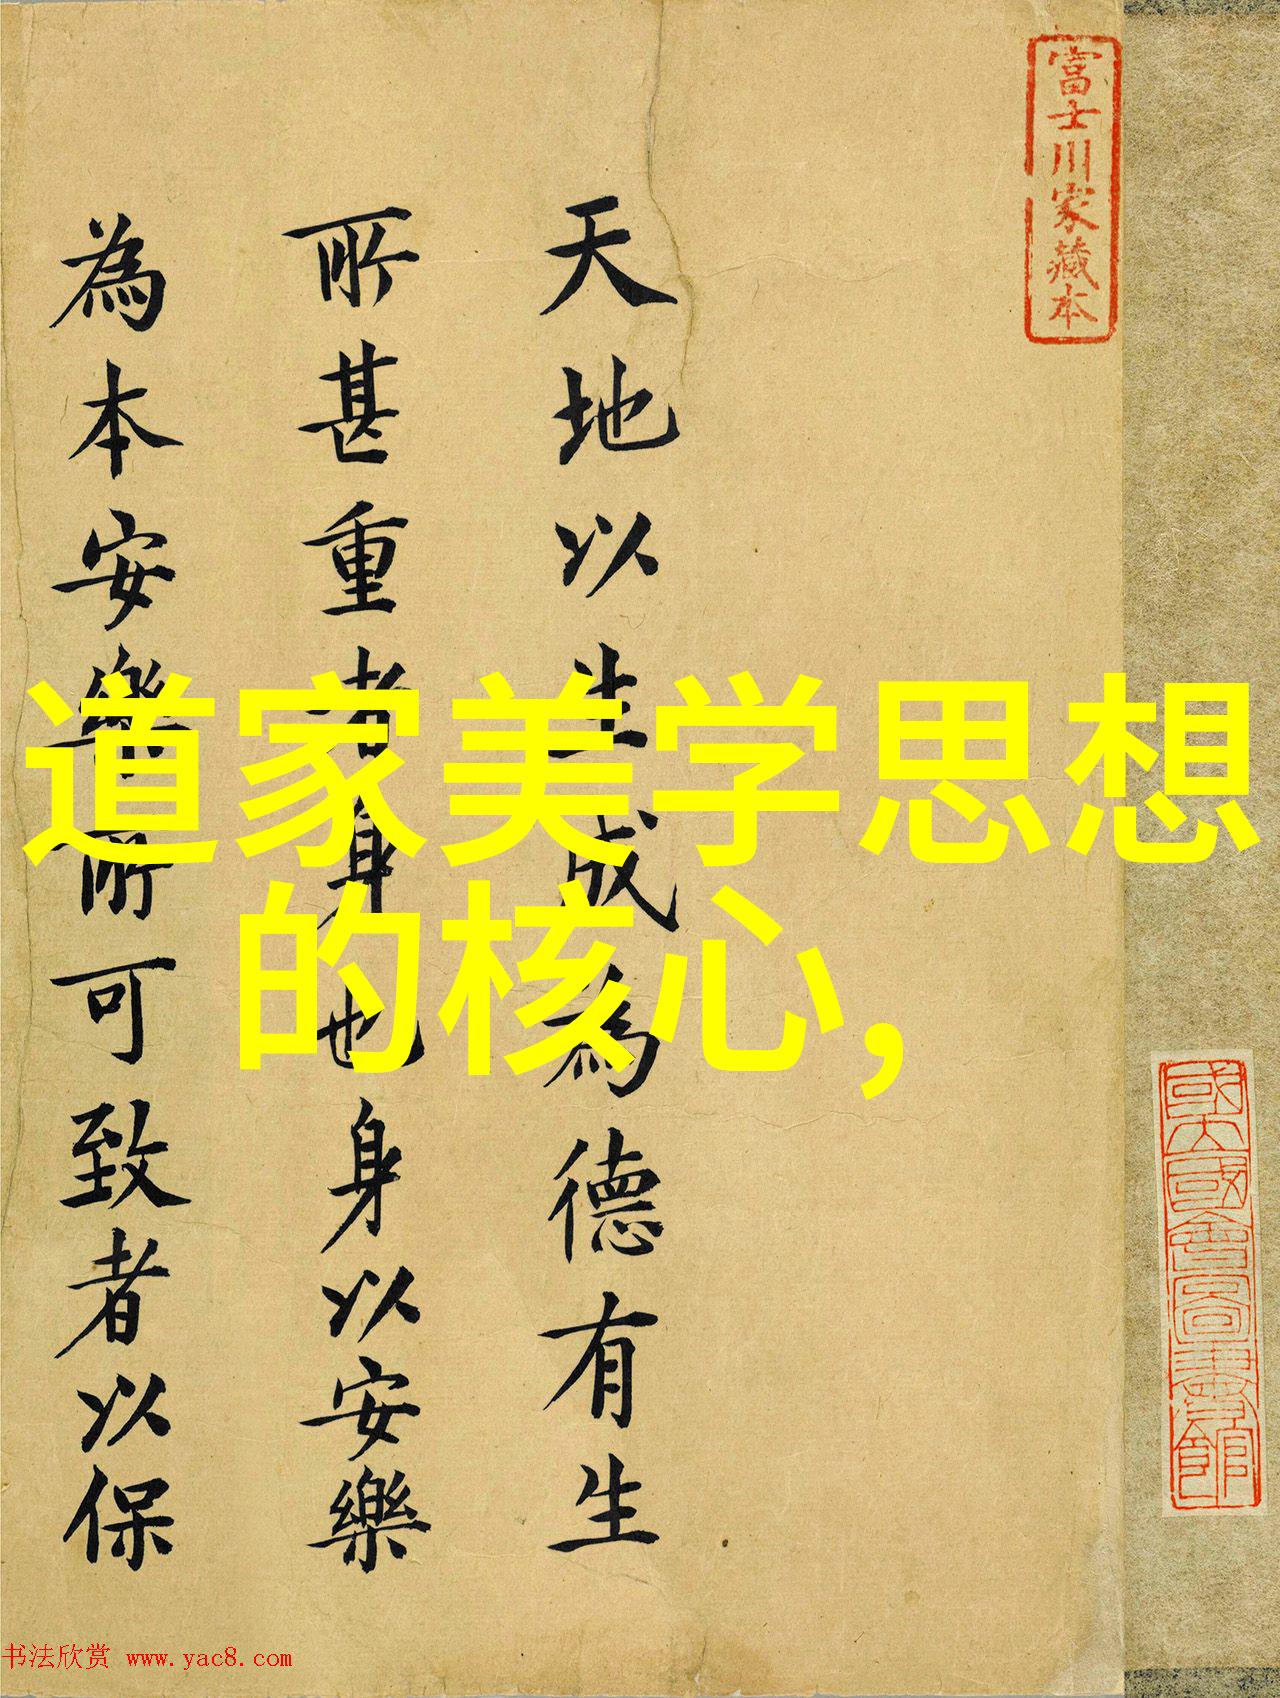 富士川家藏本
天地以生成為德有生
所甚重者身也身以安樂
為本安樂所可致者以保
道家美学思想
的核心，
國立國會圖書館
书法欣赏 www.yac8.com